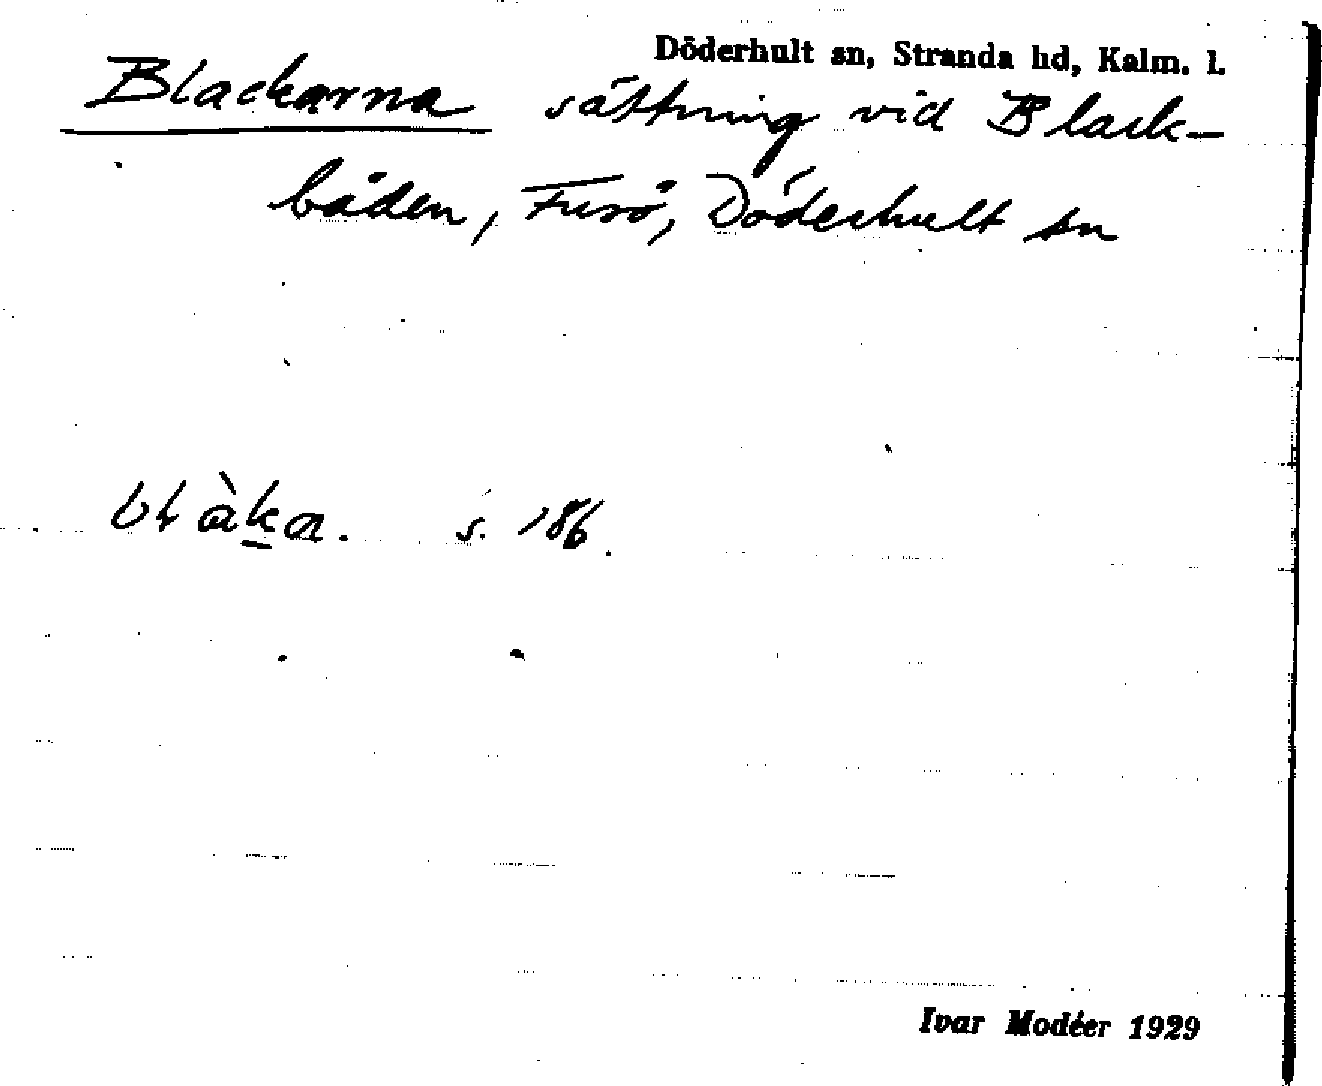 Döderhult sn, Stranda hd, Kalm. l.
Blackarna sättning vid Black-
båden, Furö, Döderhult sn
blàka. s. 186.
Ivar Modéer 1929